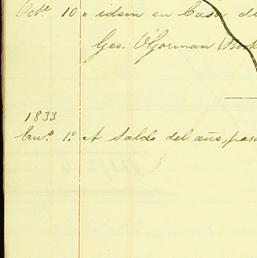 Oct.e 10 " idem en Casa de
Geo. O'Gorman
1833
En.o 1.o A Saldo del año pasa